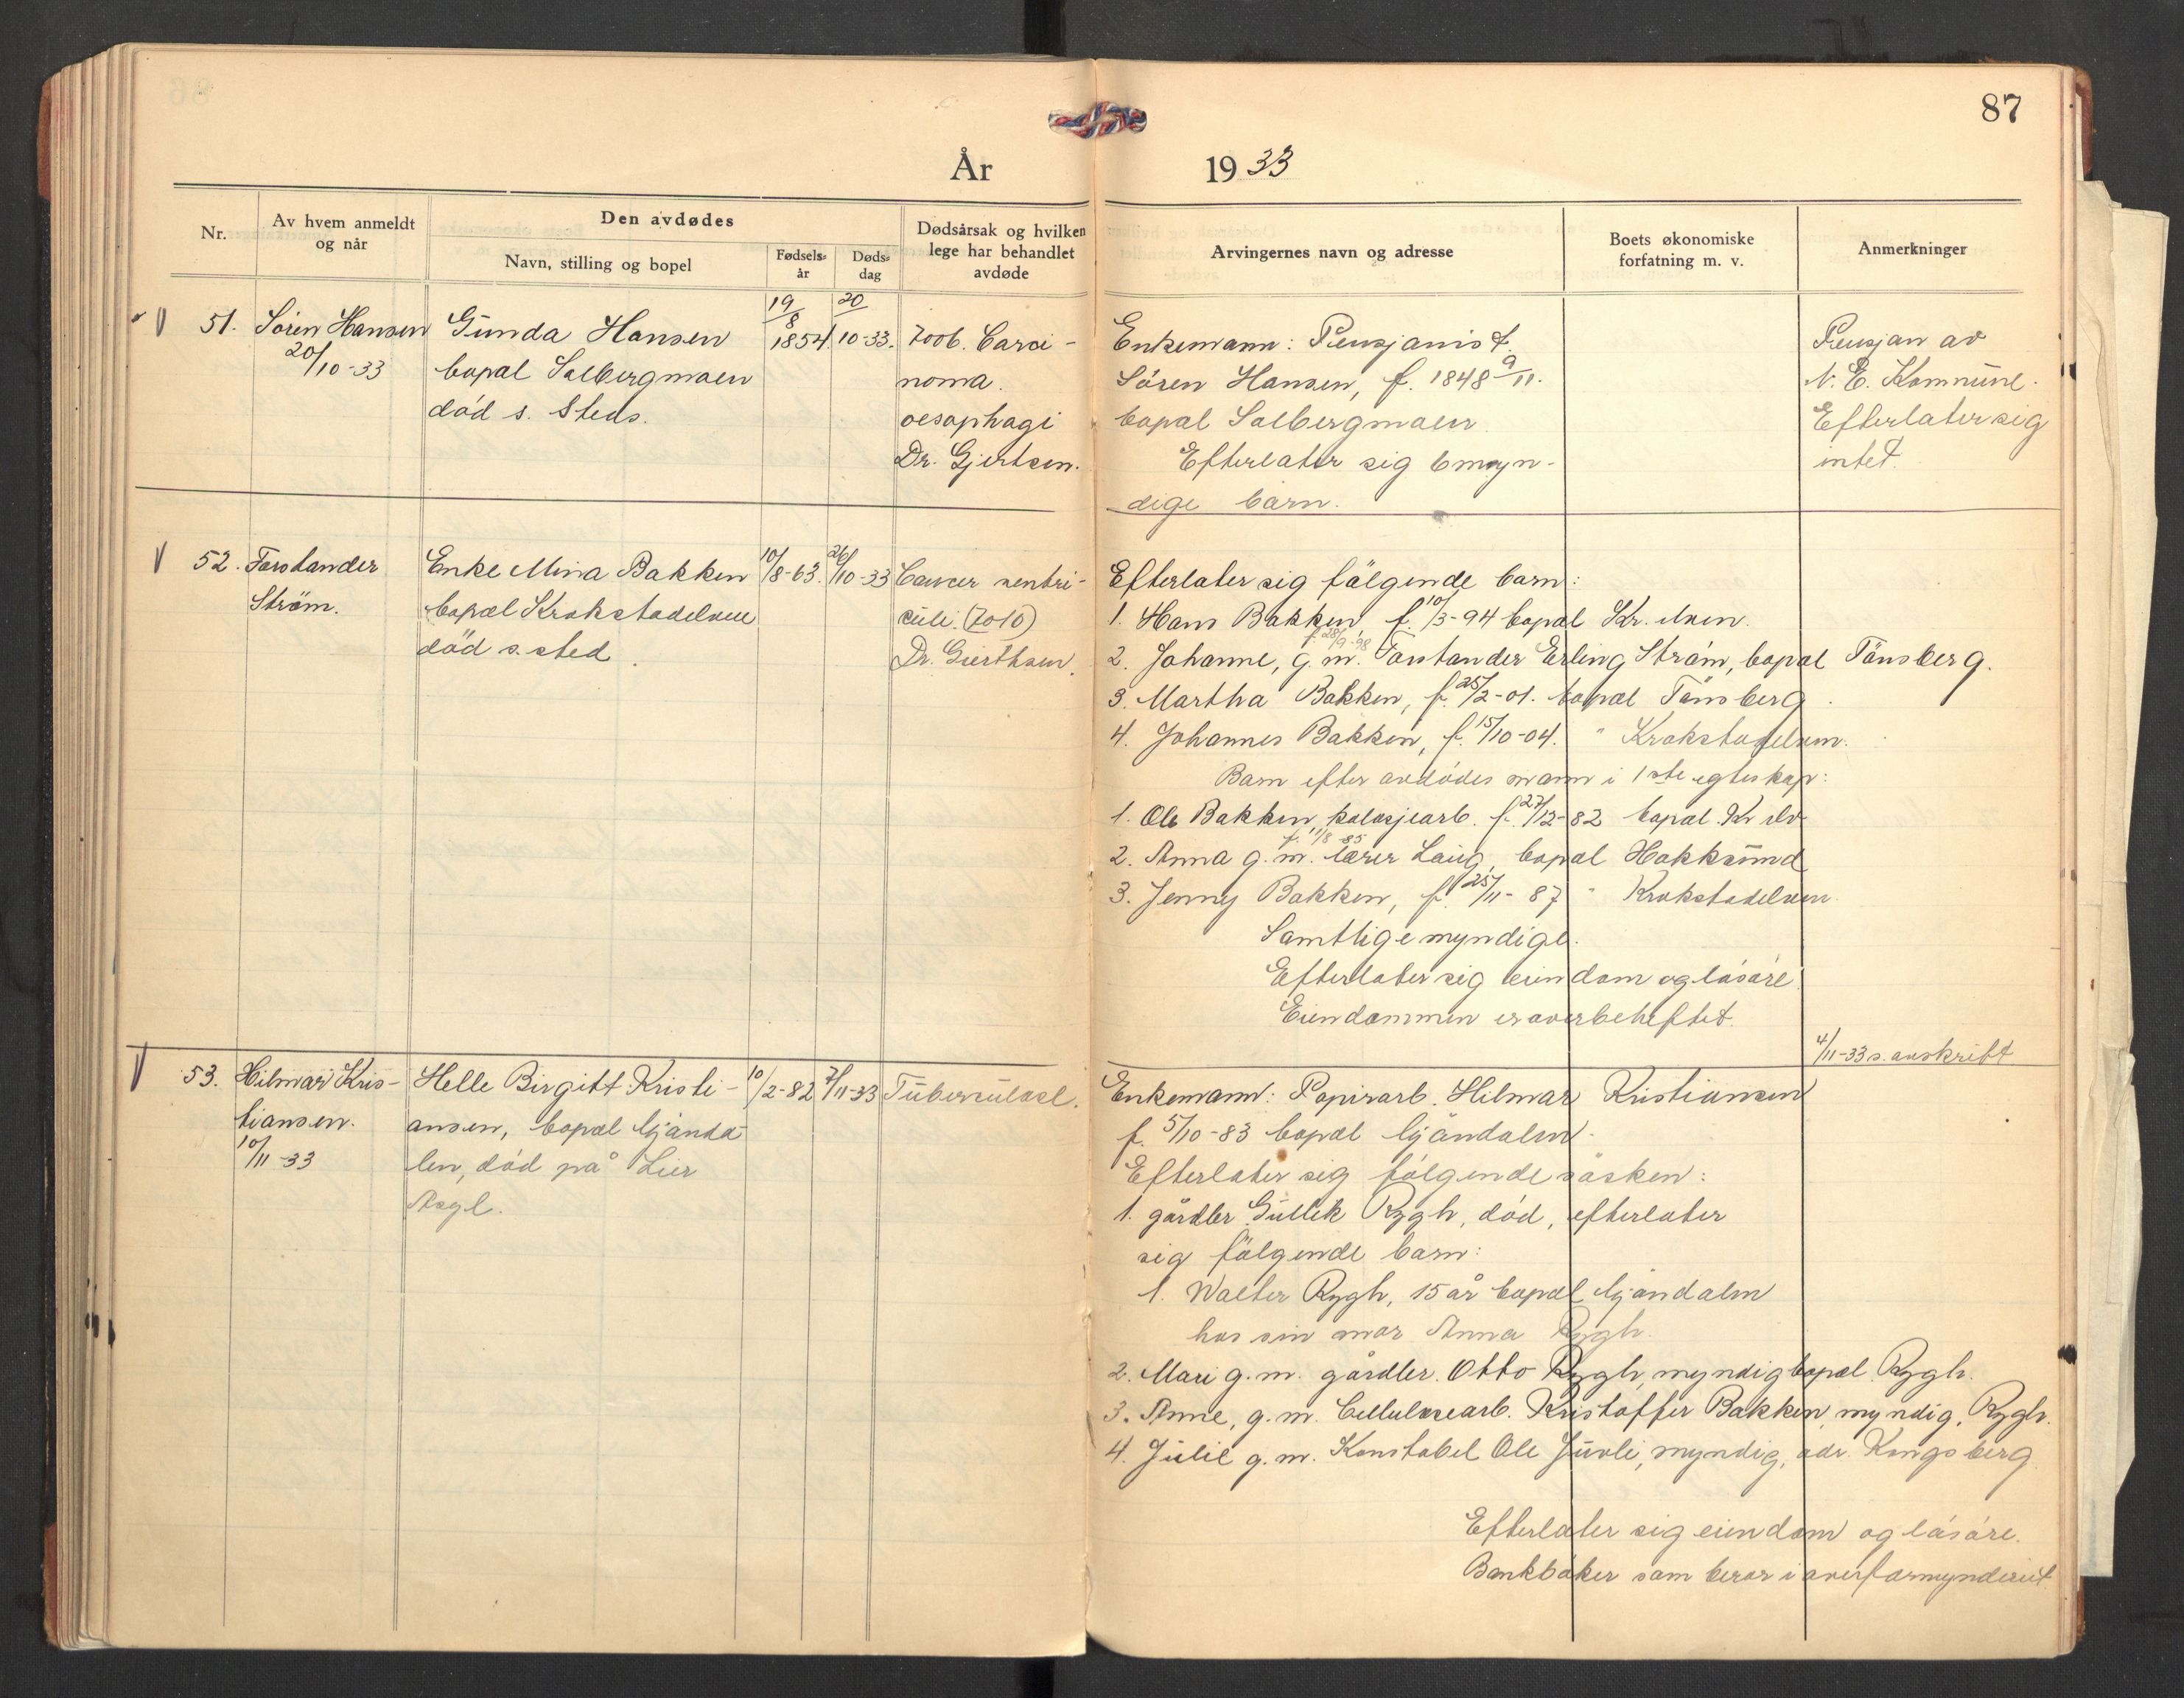 87
År 1933
Nr.
Av hvem anmeldt
og når
Den avdødes
Navn, stilling og bopel
Fødsels-
år
Døds-
dag
Dødsårsak og hvilken
lege har behandlet
avdøde
Arvingernes navn og adresse
Boets økonomiske
forfatning m. v.
Anmerkninger
51.
Sören Hansen
20/10-33
Gunda Hansen
bopal Solbergmoen
död s. Steds.
19/8
1854.
20
10-33.
7006. Carci-
noma.
oesophagi
Dr. Gjertsen.
Enkemann: Pensjonist
Sören Hansen, f. 1848 9/11.
bopal Solbergmoen
Efterlater sig 6 myn-
dige barn.
Pensjon av
N. E. Kommune.
Efterlater sig
intet.
52.
Forstander
Ström.
Enke Mina Bakken
bopæl Krokstadelven
död s. sted
10/8-63.
26/10-33
Cancer ventri-
culi. (7010)
Dr. Gierthsen.
Efterlater sig fölgende barn:
1. Hans Bakken f. 10/3-94 bopal Kr. elven.
f. 28/9-98
2. Johanne, g. m. Forstander Erling Ström, bopal Tönsberg.
3. Martha Bakken, f. 25/2-01. bopæl Tönsberg.
4. Johannes Bakken, f. 15/10-04. " Krokstadelven.
Barn efter avdödes mann i 1ste egteskap:
1. Ole Bakken, f. 27/12-82 bopal. Kr elv
f. 11/8 85
2. Anna g. m. lærer Laug, bopal Hokksund
3. Jenny Bakken, f. 25/11-87 " Krokstadelven.
Samtlige myndige.
Efterlater sig eiendom og lösöre.
Eiendommen er overbeheftet.
4/11-33 s. avskrift
53.
Hilmar Kris-
tiansen.
10/11-33
Helle Birgitt Kristi-
ansen, bopæl Mjönda-
len, död på Lier
Asyl.
10/2-82
7/11-33
Tuberculose.
Enkemann: Papirarb. Hilmar Kristiansen
f. 5/10-83 bopæl Mjöndalen.
Efterlater sig fölgende sösken:
1. gårdbr. Gullik Rygh, död, efterlater
sig fölgende barn:
1. Walter Rygh, 15 år bopæl Mjöndalen
hos sin mor Anna Rygh.
2. Mari g. m. gårdbr. Otto Rygh, myndig bopæl Rygh.
3. Anne, g. m. Cellulosearb. Kristoffer Bakken, myndig, Rygh.
4. Julie g. m. Konstabel Ole Juvli, myndig, adr. Kongsberg
Efterlater sig eiendom og lösöre.
Bankböker som beror i overformynderiet